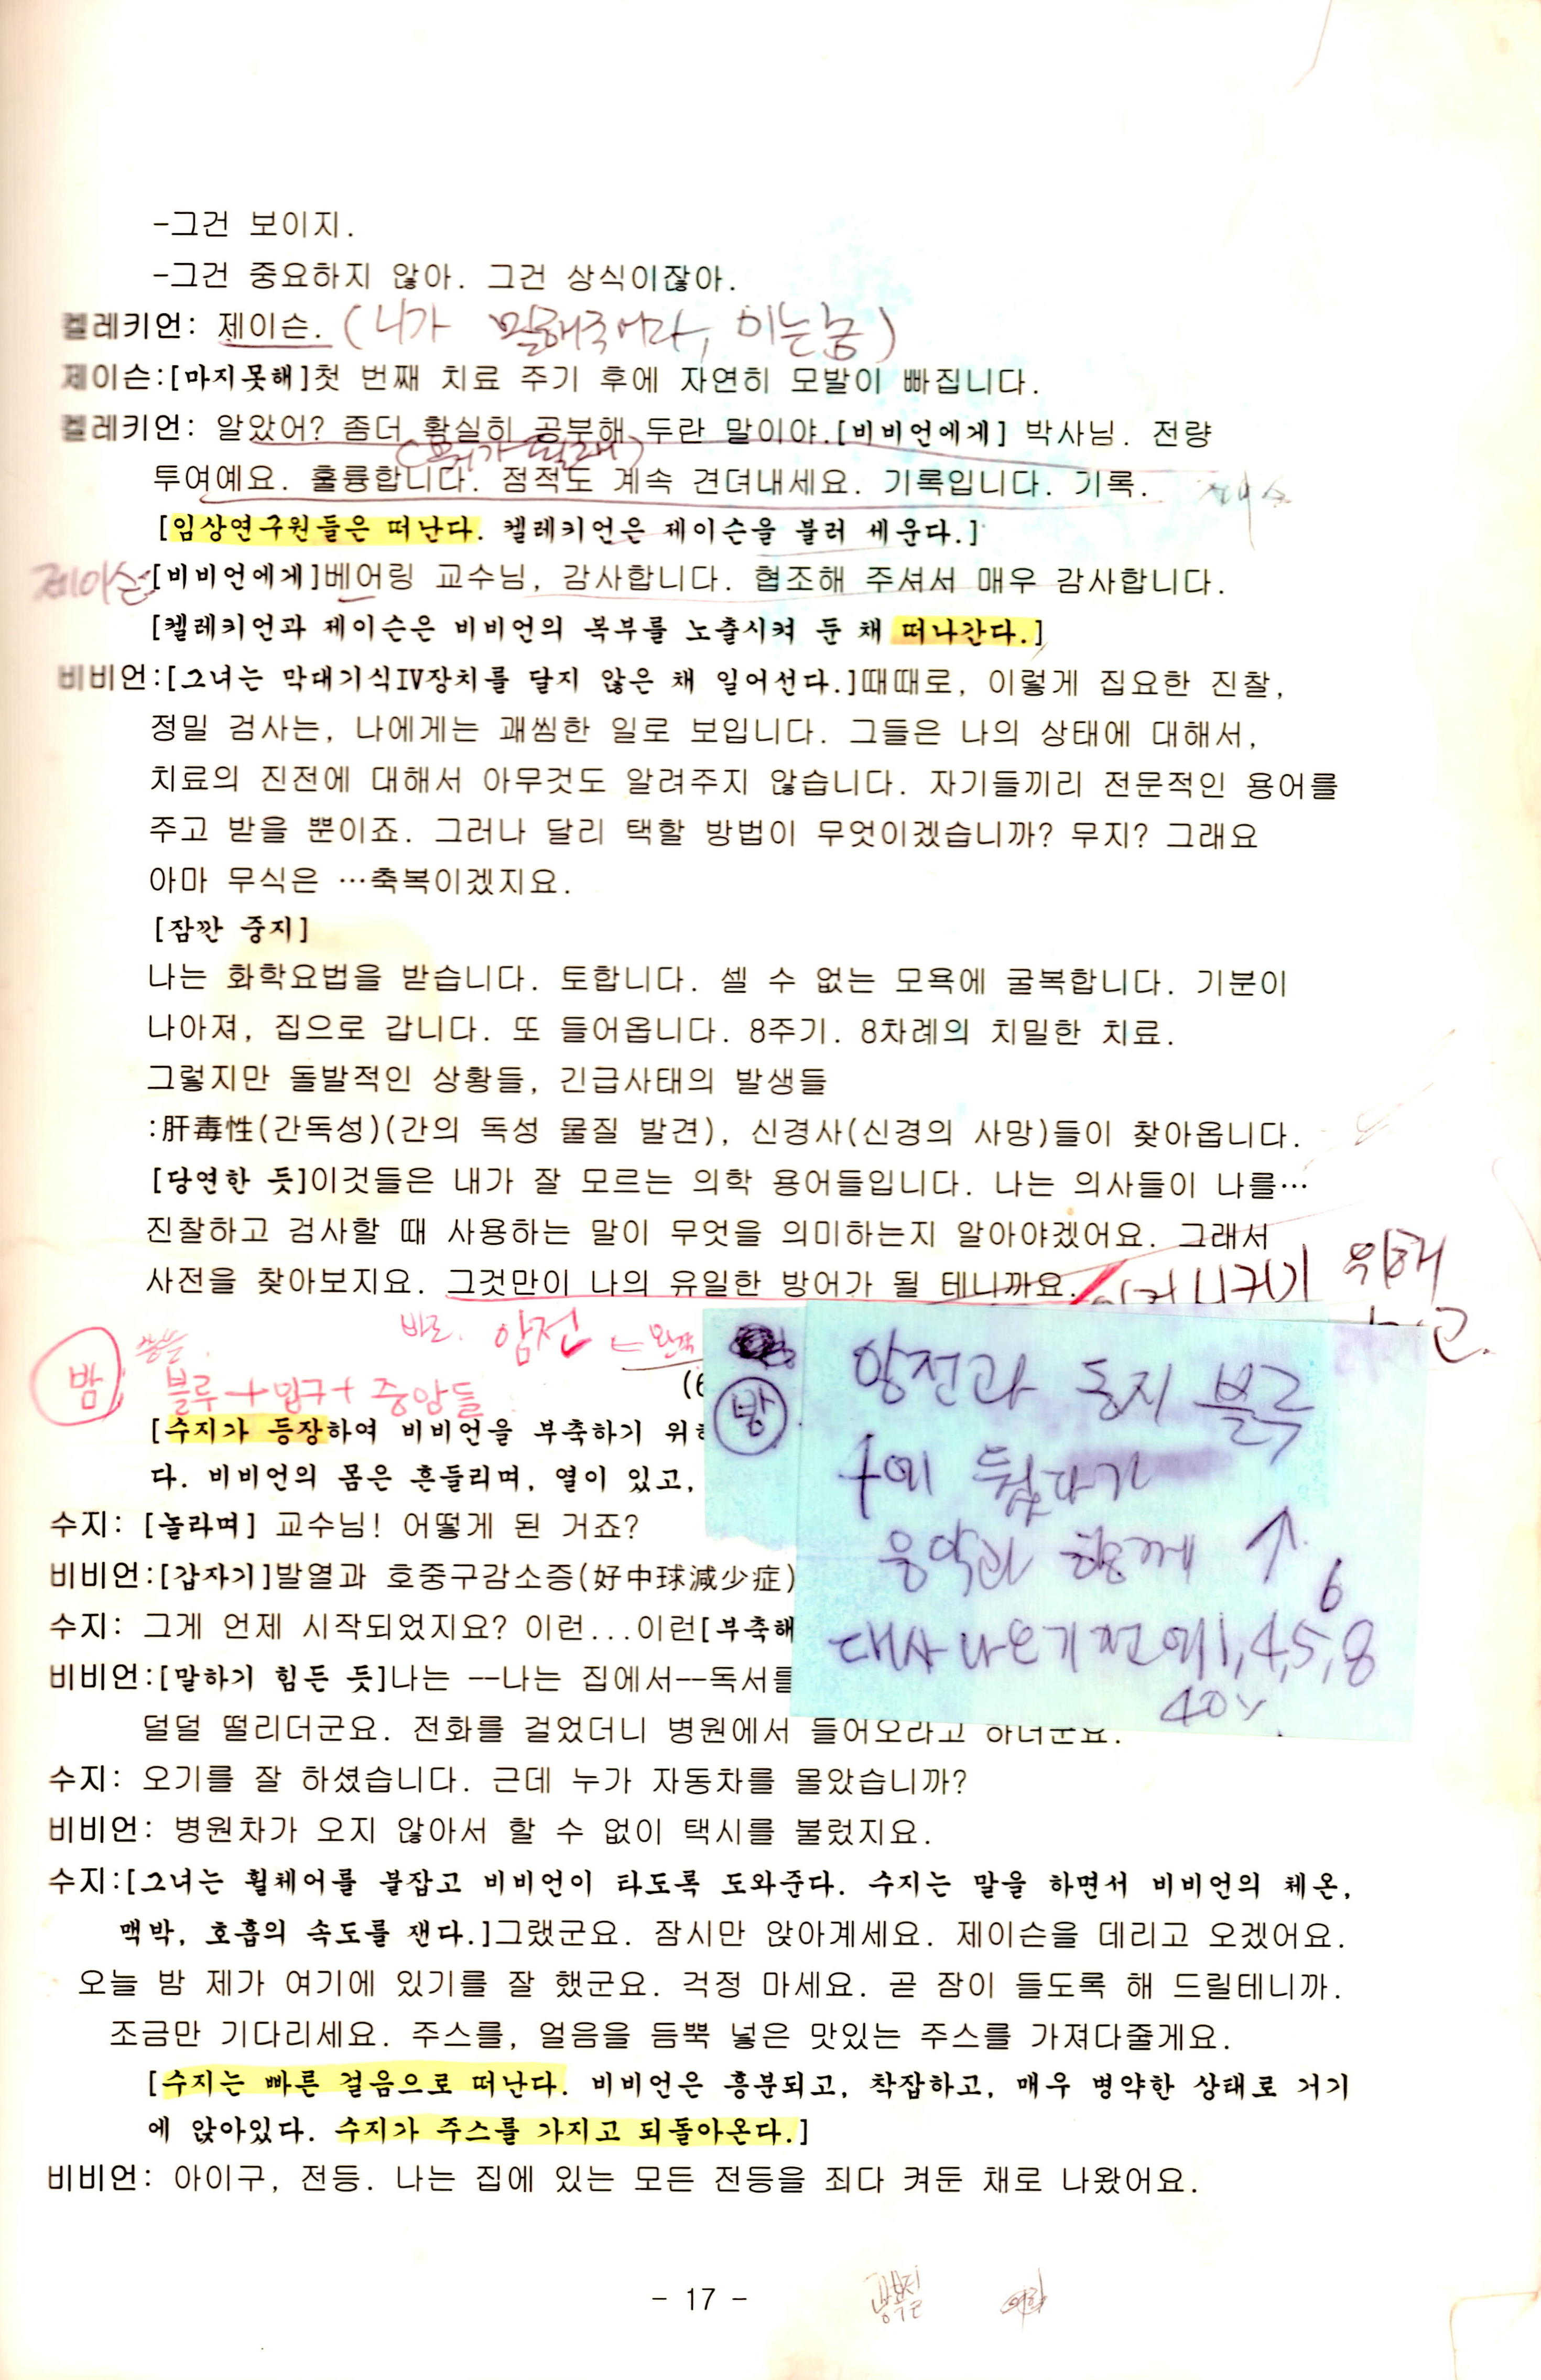 -그건 보이지.
-그건 중요하지 않아. 그건 상식이잖아.
켈레키언: 제이슨. (니가 말해주어라, 이는놈)
제이슨:[마지못해]첫 번째 치료 주기 후에 자연히 모발이 빠집니다.
켈레키언: 알았어? 좀더 확실히 공부해 두란 말이야.[비비언에게] 박사님. 전량
투여예요. 훌륭합니다. 점적도 계속 견뎌내세요. 기록입니다. 기록.
[임상연구원들은 떠난다. 켈레키언은 제이슨을 불러 세운다.]
제이슨:[비비언에게]베어링 교수님, 감사합니다. 협조해 주셔서 매우 감사합니다.
[켈레키언과 제이슨은 비비언의 복부를 노출시켜 둔 채 떠나간다.]
비비언:[그녀는 막대기식IV장치를 달지 않은 채 일어선다.]때때로, 이렇게 집요한 진찰,
정밀 검사는, 나에게는 괘씸한 일로 보입니다. 그들은 나의 상태에 대해서,
치료의 진전에 대해서 아무것도 알려주지 않습니다. 자기들끼리 전문적인 용어를
주고 받을 뿐이죠. 그러나 달리 택할 방법이 무엇이겠습니까? 무지? 그래요
아마 무식은 …축복이겠지요.
[잠깐 중지]
나는 화학요법을 받습니다. 토합니다. 셀 수 없는 모욕에 굴복합니다. 기분이
나아져, 집으로 갑니다. 또 들어옵니다. 8주기. 8차례의 치밀한 치료.
그렇지만 돌발적인 상황들, 긴급사태의 발생들
:肝毒性(간독성)(간의 독성 물질 발견), 신경사(신경의 사망)들이 찾아옵니다.
[당연한 듯]이것들은 내가 잘 모르는 의학 용어들입니다. 나는 의사들이 나를…
진찰하고 검사할 때 사용하는 말이 무엇을 의미하는지 알아야겠어요. 그래서
사전을 찾아보지요. 그것만이 나의 유일한 방어가 될 테니까요. 위해
바로. 암전
밤 블루+입구+중앙들
방 암전과 동시 블루
에 뒀다가
음악과 함께 ↑
대사 나오기 전에 1,4,5,8
6
40%
[수지가 등장하여 비비언을 부축하기 위
다. 비비언의 몸은 흔들리며, 열이 있고,
수지: [놀라며] 교수님! 어떻게 된 거죠?
비비언:[갑자기]발열과 호중구감소증(好中球減少症)
수지: 그게 언제 시작되었지요? 이런...이런[부축해
비비언:[말하기 힘든 듯]나는 --나는 집에서--독서를
덜덜 떨리더군요. 전화를 걸었더니 병원에서 들어오라고 하더군요.
수지: 오기를 잘 하셨습니다. 근데 누가 자동차를 몰았습니까?
비비언: 병원차가 오지 않아서 할 수 없이 택시를 불렀지요.
수지:[그녀는 휠체어를 붙잡고 비비언이 타도록 도와준다. 수지는 말을 하면서 비비언의 체온,
맥박, 호흡의 속도를 잰다.]그랬군요. 잠시만 앉아계세요. 제이슨을 데리고 오겠어요.
오늘 밤 제가 여기에 있기를 잘 했군요. 걱정 마세요. 곧 잠이 들도록 해 드릴테니까.
조금만 기다리세요. 주스를, 얼음을 듬뿍 넣은 맛있는 주스를 가져다줄게요.
[수지는 빠른 걸음으로 떠난다. 비비언은 흥분되고, 착잡하고, 매우 병약한 상태로 거기
에 앉아있다. 수지가 주스를 가지고 되돌아온다.]
비비언: 아이구, 전등. 나는 집에 있는 모든 전등을 죄다 켜둔 채로 나왔어요.
- 17 -